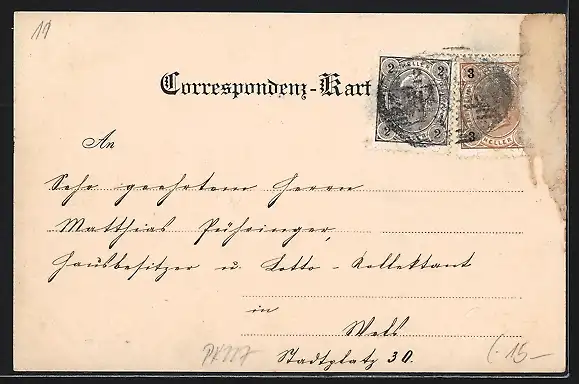 11
Correspondenz-Kart
2 HELLER 2
2 2
3
3 HELLER
An
Sehr geehrtem Herrn
Matthias Pühringer,
Hausbesitzer u. Lotto-Kollektant
in
Wels
Stadtplatz 30.
PK777
(.15-